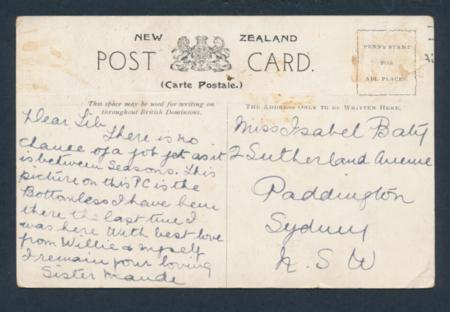 NEW ZEALAND
POST CARD.
(Carte Postale.)
PENNY STAMP
FOR
ALL PLACES
This space may be used for writing on
throughout British Dominions.
THE ADDRESS ONLY TO BE WRITTEN HERE.
Dear Lib
There is no
chance of a job yet as it
is between Seasons. This
picture on this PC is the
Bottomless I have been
there the last time I
was here With best love
from Willie & myself
I remain your loving
Sister Maude
Miss Isabel Baty
2 Sutherland Avenue
Paddington
Sydney
N. S W